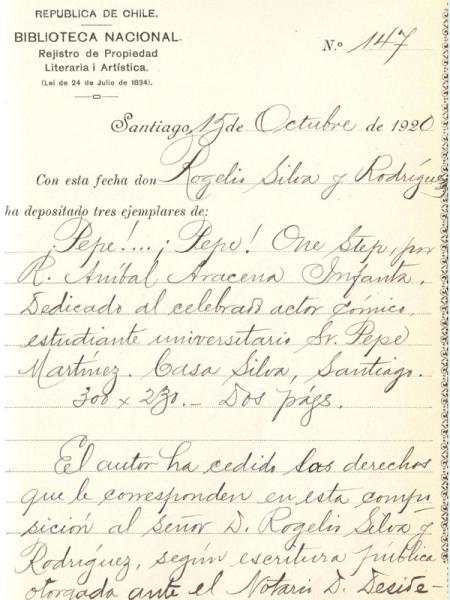 REPUBLICA DE CHILE.
BIBLIOTECA NACIONAL.
Rejistro de Propiedad
Literaria i Artística.
(Lei de 24 de Julio de 1834).
N.º 147
Santiago, 15 de Octubre de 1920
Con esta fecha don Rogelio Silva y Rodríguez
ha depositado tres ejemplares de:
¡Pepe!... ¡Pepe! One Step, por
R. Aníbal Aracena Infanta.
Dedicado al celebrado actor cómico,
estudiante universitario Sr. Pepe
Martínez. Casa Silva, Santiago.
300 x 230.– Dos págs.
El autor ha cedido los derechos
que le corresponden en esta compo
sición al señor D. Rogelio Silva y
Rodríguez, según escritura pública
otorgada ante el Notario D. Deside-